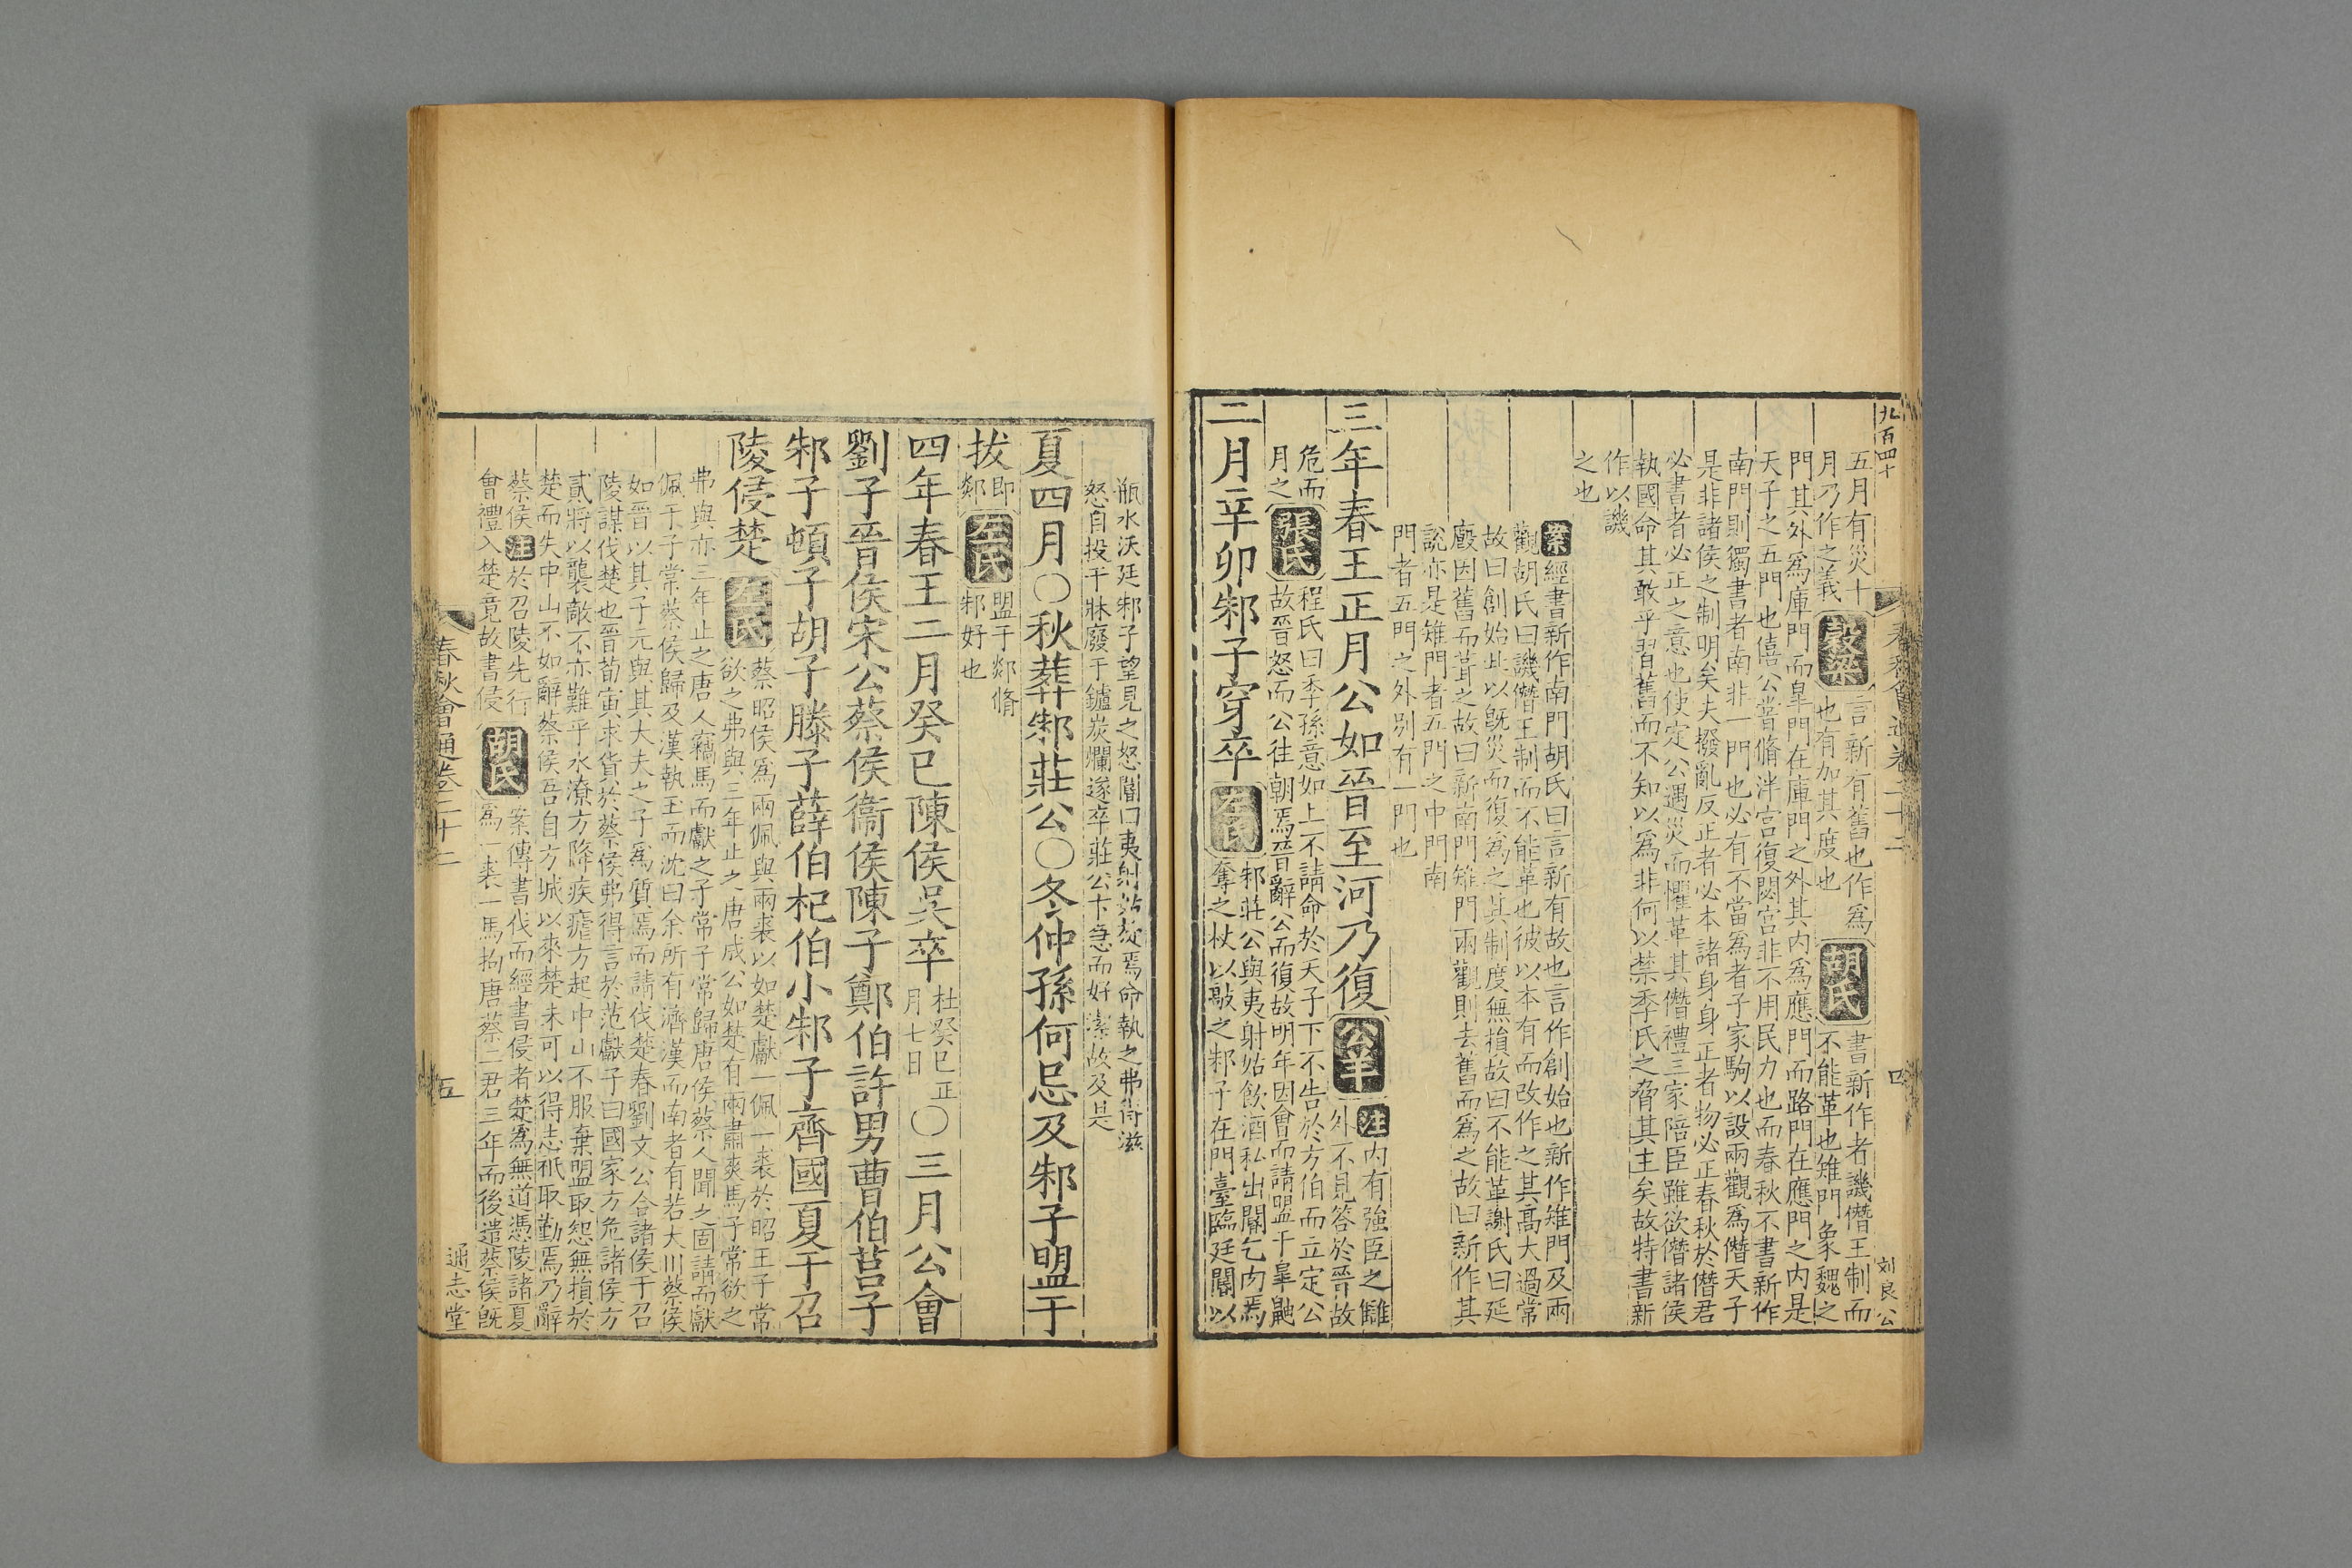 九百四十
春秋會通卷二十二
四
刘良公
五月有災十
月乃作之義
穀梁
言新有舊也作爲
也有加其度也
胡氏
書新作者譏僭王制而
不能革也雉門象魏之
門其外爲庫門而臯門在庫門之外其内爲應門而路門在應門之内是
天子之五門也僖公甞脩泮宮復閟宮非不用民力也而春秋不書新作
南門則獨書者南非一門也必有不當爲者子家駒以設兩觀爲僭天子
是非諸侯之制明矣夫撥亂反正者必本諸身身正者物必正春秋於僭君
必書者必正之意也使定公遇災而懼革其僭禮三家陪臣雖欲僭諸侯
執國命其敢乎習舊而不知以爲非何以禁季氏之脅其主矣故特書新
作以譏
之也
案經書新作南門胡氏曰言新有故也言作創始也新作雉門及兩
觀胡氏曰譏僭王制而不能革也彼以本有而改作之其高大過常
故曰創始此以旣災而復爲之其制度無損故曰不能革謝氏曰延
廐因舊而葺之故曰新南門雉門兩觀則去舊而爲之故曰新作其
說亦是雉門者五門之中門南
門者五門之外别有一門也
三年春王正月公如晉至河乃復
公羊
注内有強臣之讎
外不見答於晉故
危而
月之
張氏
程氏曰季孫意如上不請命於天子下不告於方伯而立定公
故晉怒而公往朝焉晉辭公而復故明年因會而請盟于臯鼬
二月辛卯邾子穿卒
左氏
邾莊公與夷射姑飲酒私出閽乞肉焉
奪之杖以敲之邾子在門臺臨廷閽以
缾水沃廷邾子望見之怒閽曰夷射姑旋焉命執之弗得滋
怒自投于牀廢于鑪炭爛遂卒莊公卞急而好潔故及是
夏四月〇秋葬邾莊公〇冬仲孫何忌及邾子盟于
拔
即
郯
左氏
盟于郯脩
邾好也
四年春王二月癸巳陳侯吳卒
杜癸巳正
月七日
〇三月公會
劉子晉侯宋公蔡侯衞侯陳子鄭伯許男曹伯莒子
邾子頓子胡子滕子薛伯杞伯小邾子齊國夏于召
陵侵楚
左氏
蔡昭侯爲兩佩與兩裘以如楚獻一佩一裘於昭王子常
欲之弗與三年止之唐成公如楚有兩肅爽馬子常欲之
弗與亦三年止之唐人竊馬而獻之子常子常歸唐侯蔡人聞之固請而獻
佩于子常蔡侯歸及漢執玉而沈曰余所有濟漢而南者有若大川蔡侯
如晉以其子元與其大夫之子爲質焉而請伐楚春劉文公合諸侯于召
陵謀伐楚也晉荀寅求貨於蔡侯弗得言於范獻子曰國家方危諸侯方
貳將以襲敵不亦難乎水潦方降疾瘧方起中山不服棄盟取怨無損於
楚而失中山不如辭蔡侯吾自方城以來楚未可以得志祇取勤焉乃辭
蔡侯
注於召陵先行
會禮入楚竟故書侵
胡氏
案傳書伐而經書侵者楚爲無道憑陵諸夏
爲一裘一馬拘唐蔡二君三年而後遣蔡侯旣
春秋會通卷二十二
五
通志堂